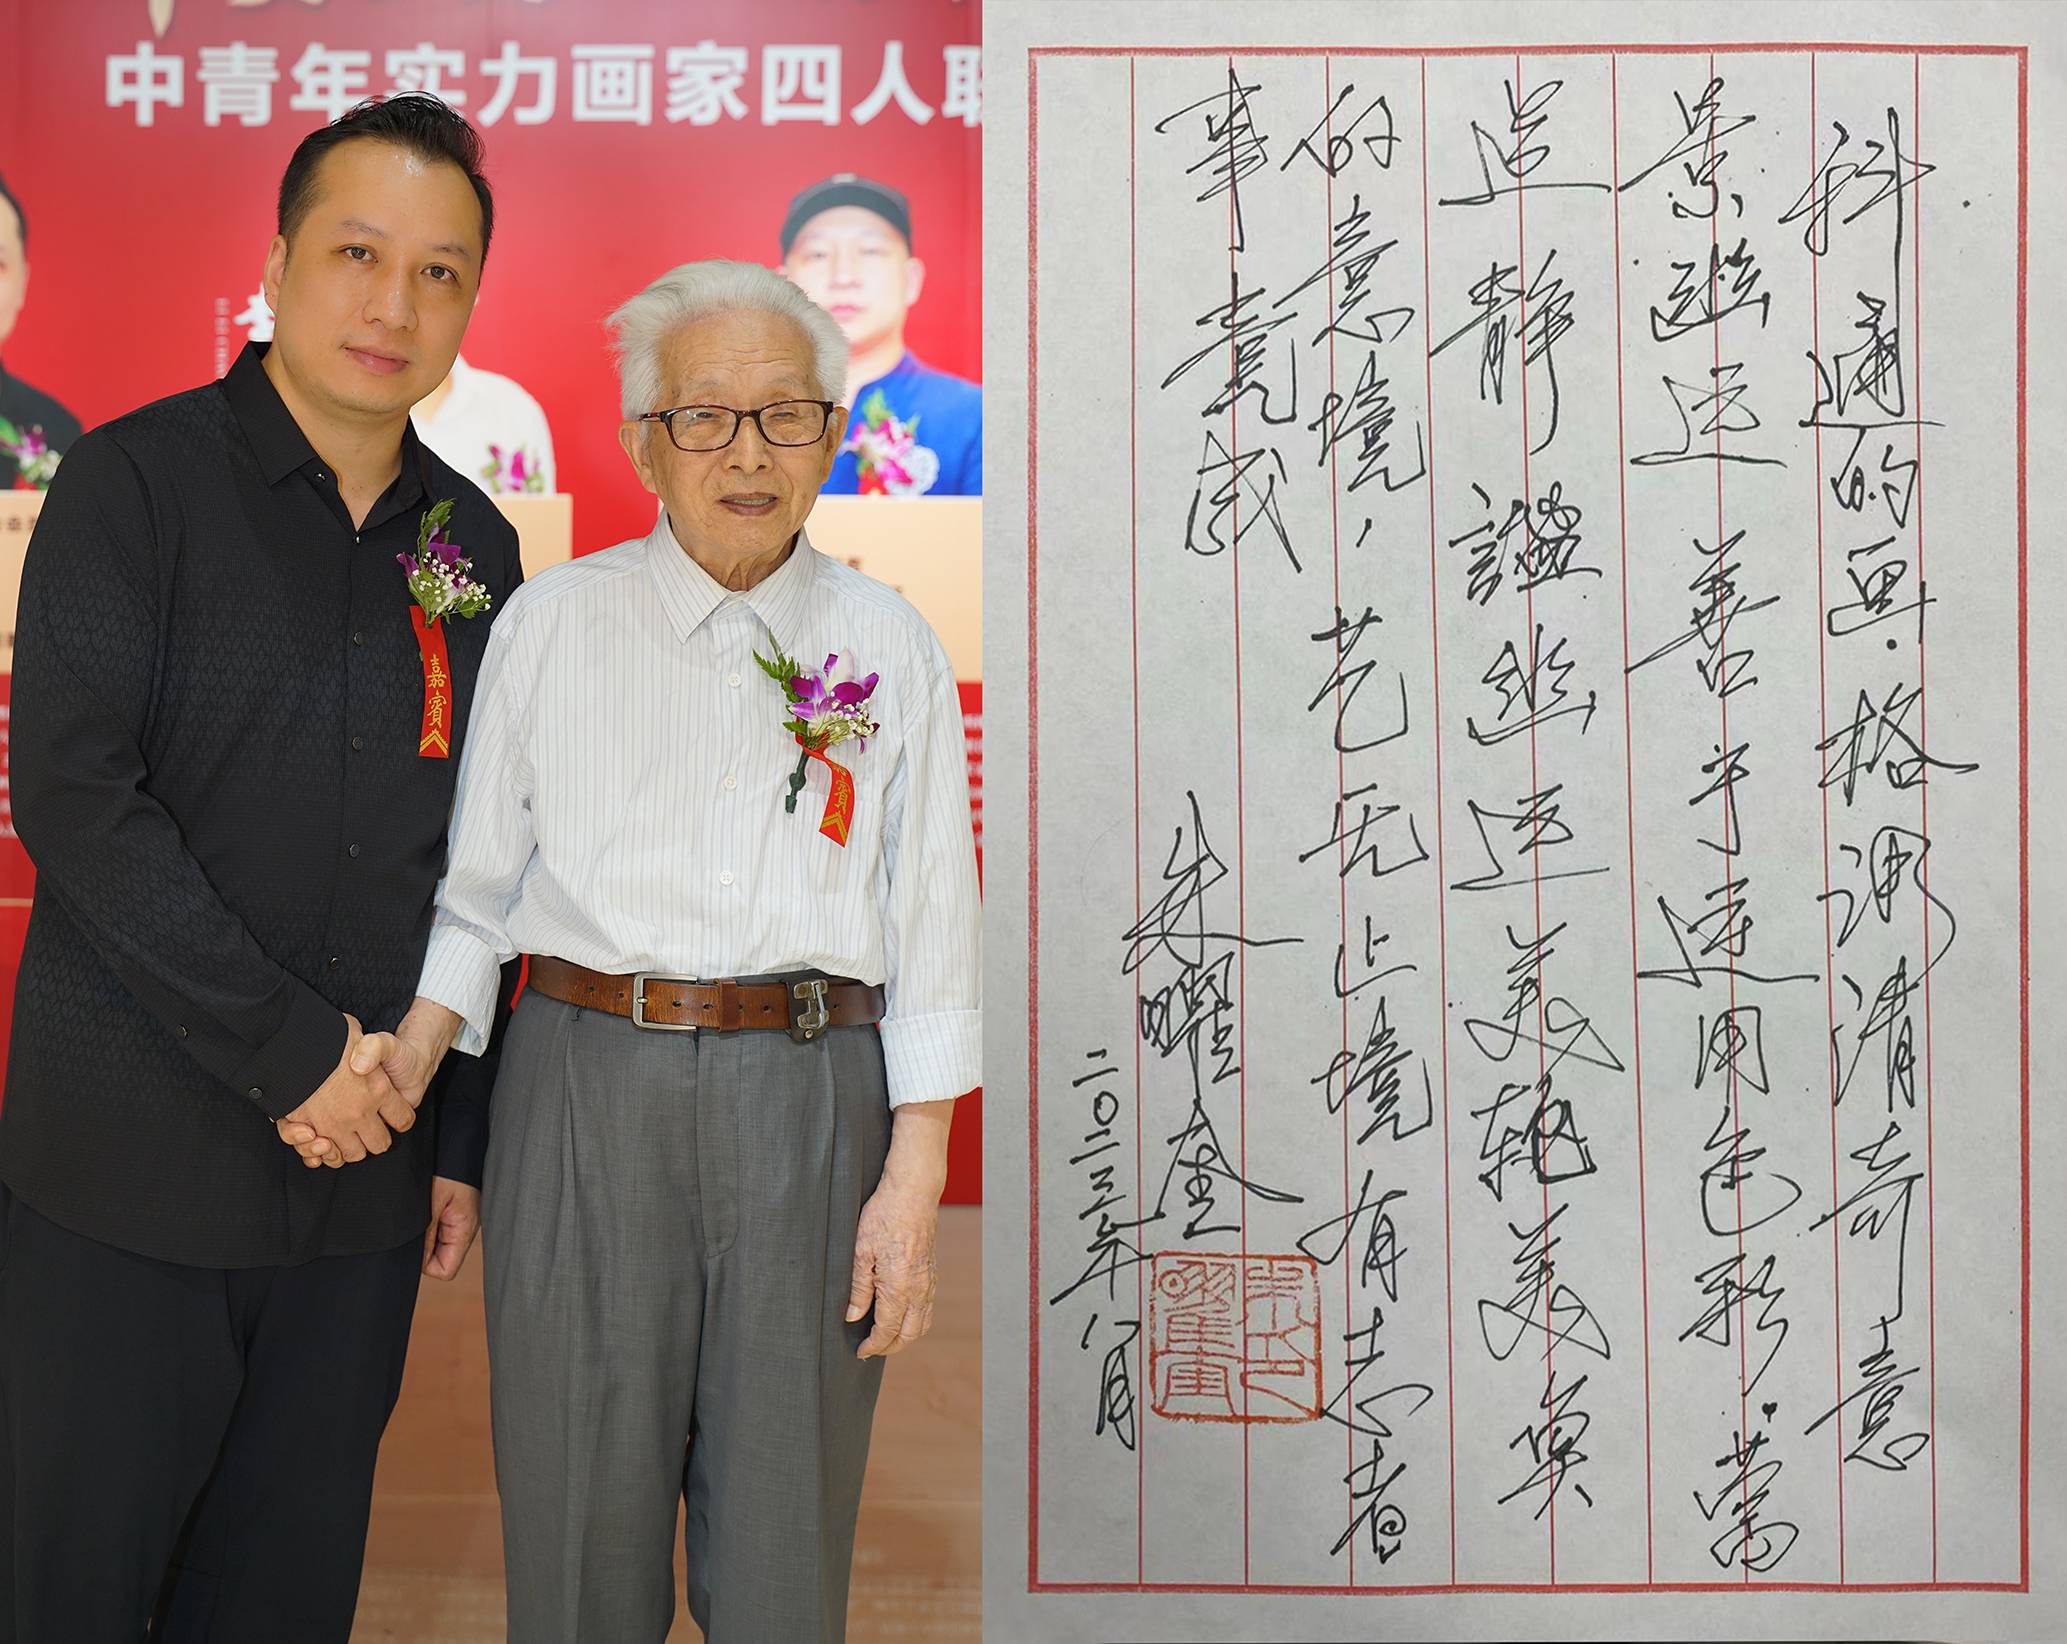 中青年实力画家四人联
嘉賓
嘉賓
科通的画.格调清奇意
景邈远善于运用色彩.营
造静谧邈远美轮美奂
的意境,艺无止境有志者
事竟成
朱曜奎
二〇二三年八月